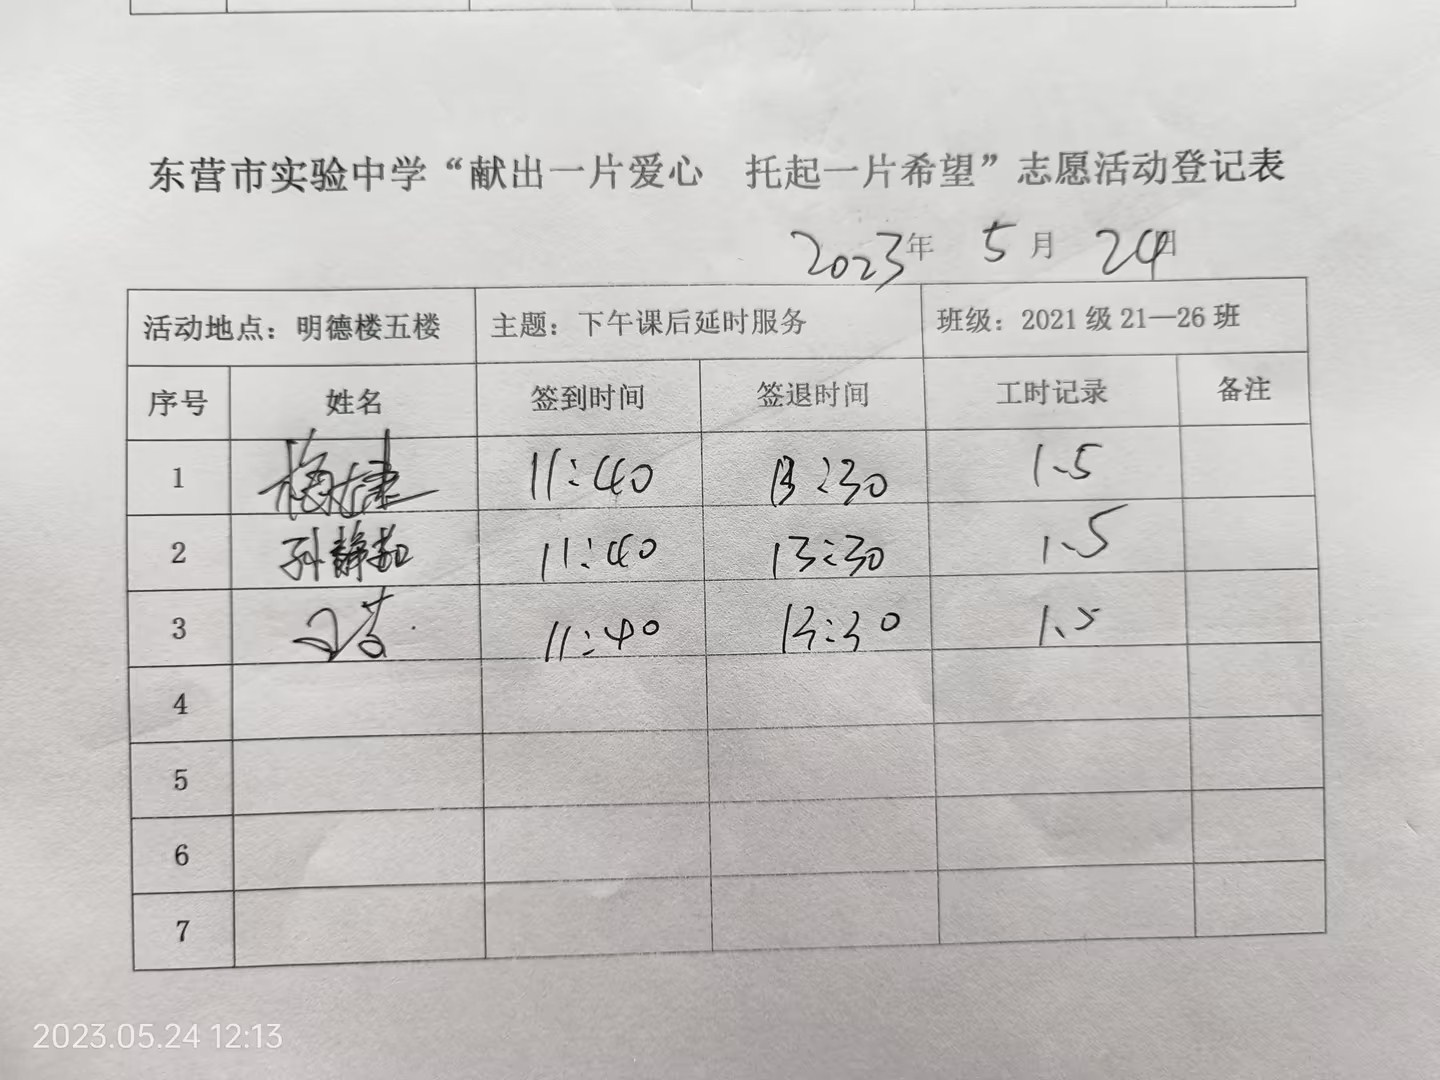 东营市实验中学“献出一片爱心 托起一片希望”志愿活动登记表
2023年 5月 24日
活动地点：明德楼五楼 主题：下午课后延时服务 班级：2021级21—26班
序号 姓名 签到时间 签退时间 工时记录 备注
1 11:40 13:30 1.5
2 孙静茹 11:40 13:30 1.5
3 11:40 13:30 1.5
4
5
6
7
2023.05.24 12:13